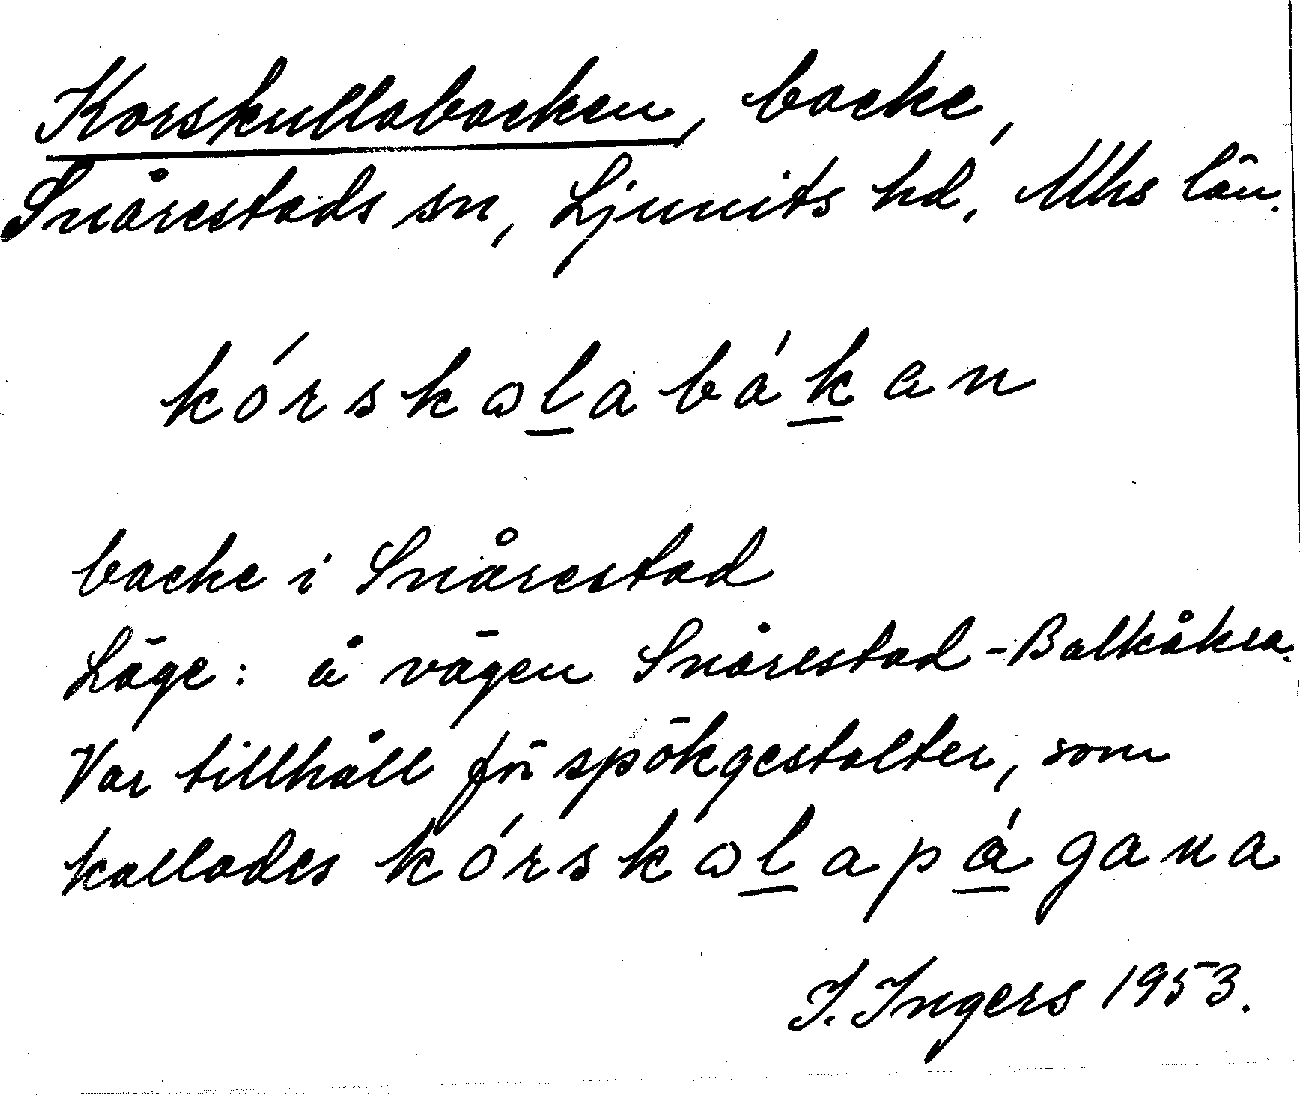 Korskullabacken, backe,
Snårestads sn, Ljunits hd, Mhs län.
kórskωlabákan
backe i Snårestad
Läge: å vägen Snårestad-Balkåkra.
Var tillhåll för spökgestalter, som
kallades kórskωlapágana
I. Ingers 1953.